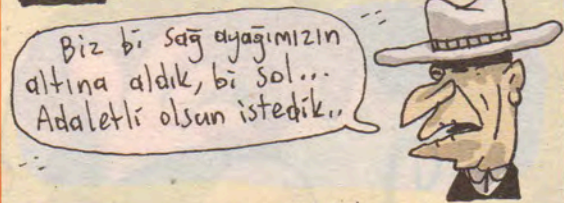 Biz bi sağ ayağımızın
altına aldık, bi sol...
Adaletli olsun istedik..